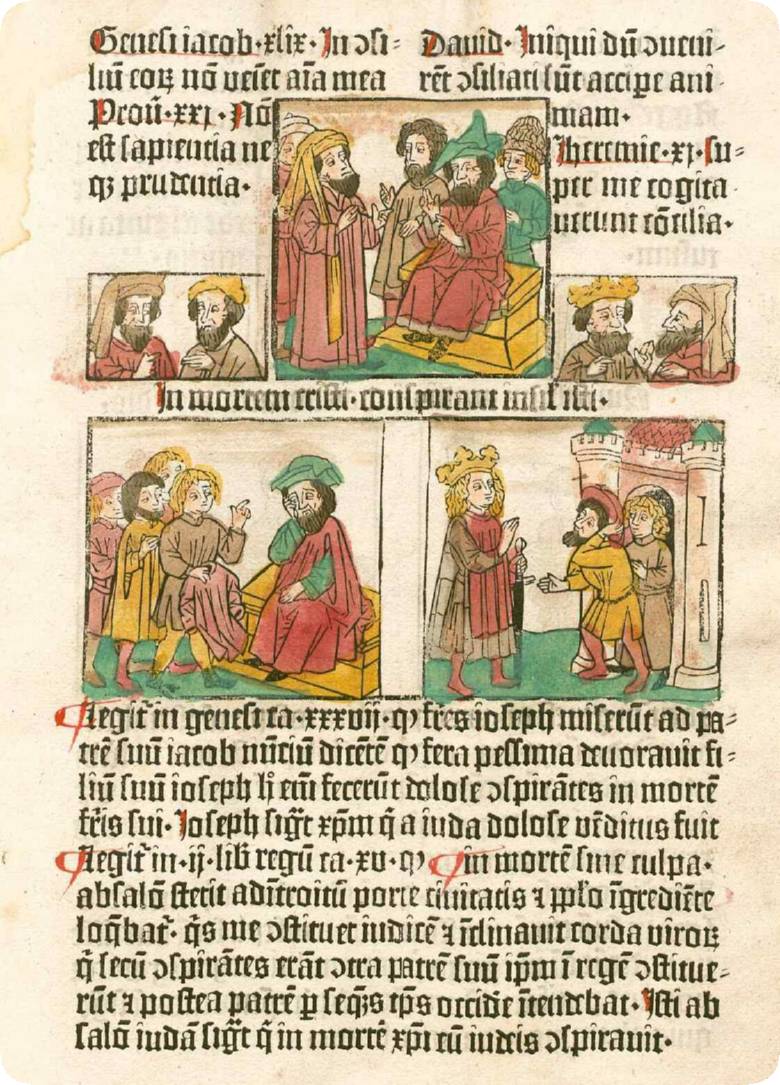 Genesi iacob·xlix·In ꝯsi=
liū eoꝝ nō veīet aīa mea
Prouͥ·xxj·Nō
est sapientia ne
qꝫ prudentia·
Dauid·Iniqui dū ꝯueni-
rēt ꝯsiliati sūt accipe ani-
mam·
Iheremie·xj·su=
per me cogita
uerunt cōsilia·
In mortem cristi·conspirant insil isti·
Legit̄ in genesi ca·xxxvij·ꝙ fr̄es ioseph miserūt ad pa=
trē suū iacob nūciū dicētē ꝙ fera pessima deuorauit fi=
liū suū ioseph hͥ em̄ fecerūt dolose ꝯspirātes in mortē
fr̄is sui·Ioseph sigͣt xp̄m q̄ a iuda dolose vēditus fuit
Legit̄ in·ij·lib̄ regū ca·xv·ꝙ In mortē sine culpa·
absalō stetit ad ītroitū porte ciuitatis ⁊ pp̄lo īgrediēte
loq̄bat̄·q̄s me ꝯstituet iudicē ⁊ īclinauit corda viroꝝ
q̄ secū ꝯspirātes erāt ꝯtra patrē suū ip̄m ī regē ꝯstitue-
rūt ⁊ postea patrē ꝑ seq̄ꝫs tp̄s occidē ītendebat·Isti ab
salō iudā sigͣt q̄ in mortē xp̄i cū iudeis ꝯspirauit·